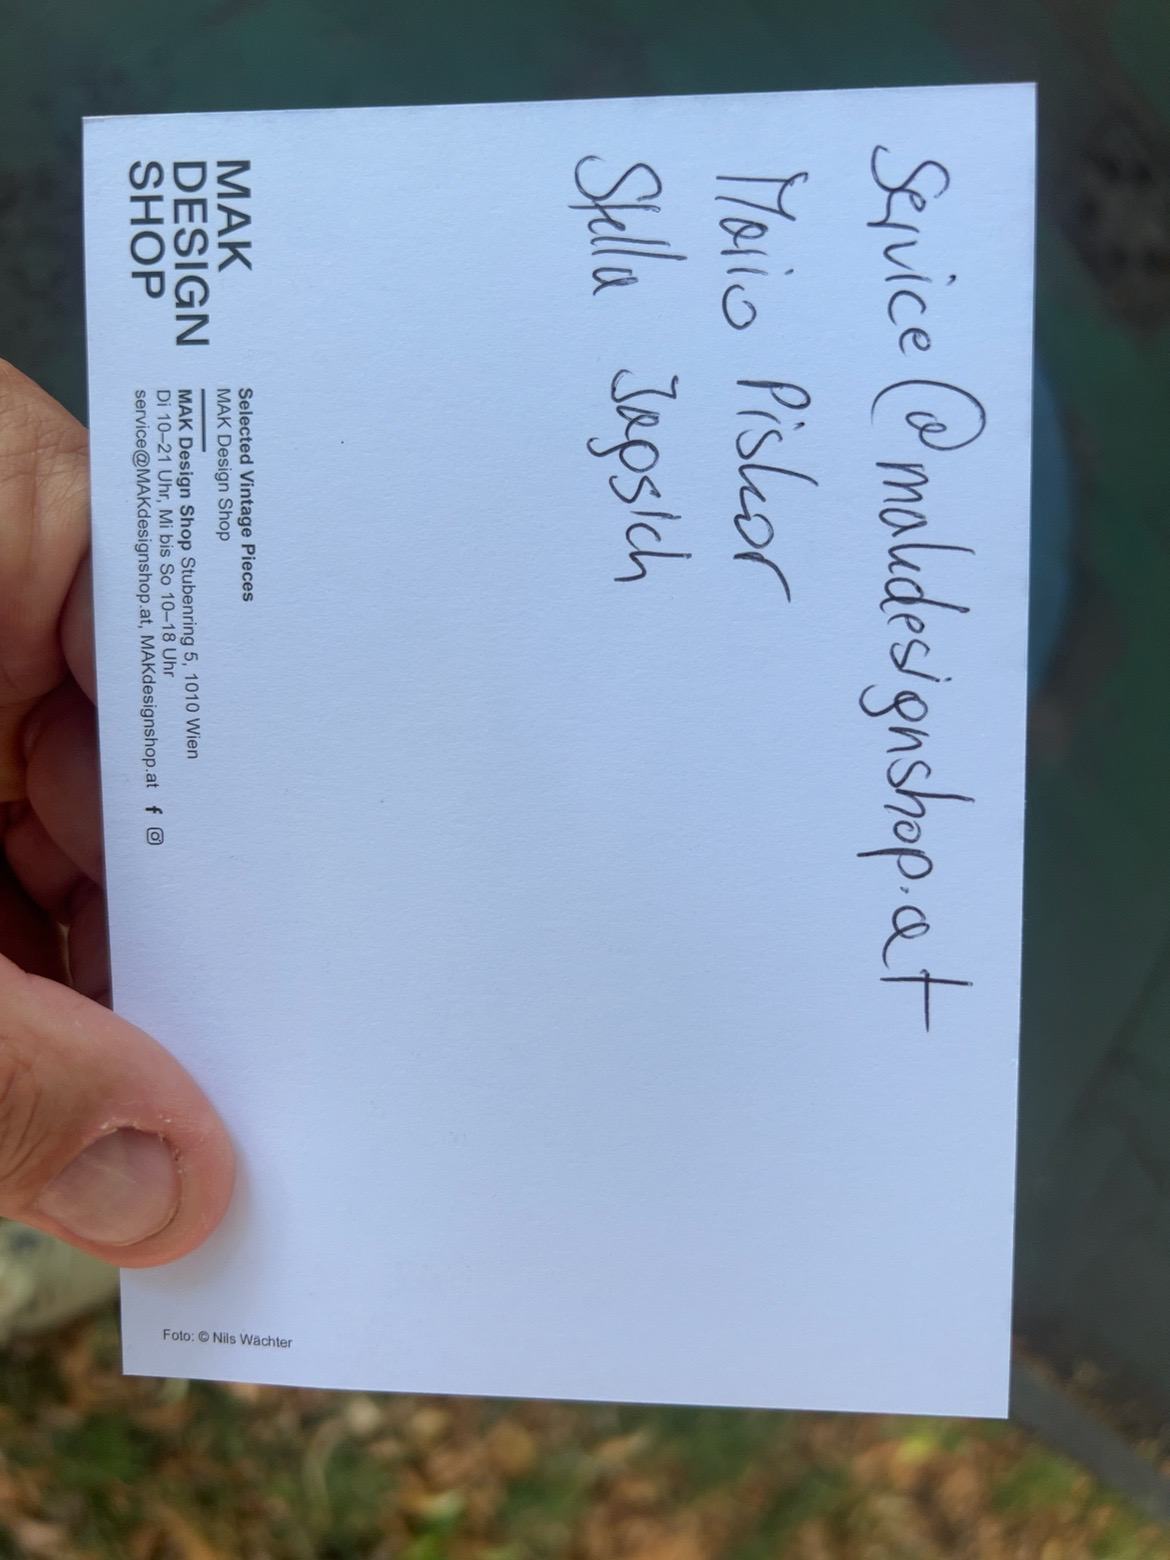 service@makdesignshop.at
Mario Piskor
Stella Jagsich
MAK
DESIGN
SHOP
Selected Vintage Pieces
MAK Design Shop
MAK Design Shop Stubenring 5, 1010 Wien
Di 10–21 Uhr, Mi bis So 10–18 Uhr
service@MAKdesignshop.at, MAKdesignshop.at
Foto: © Nils Wächter